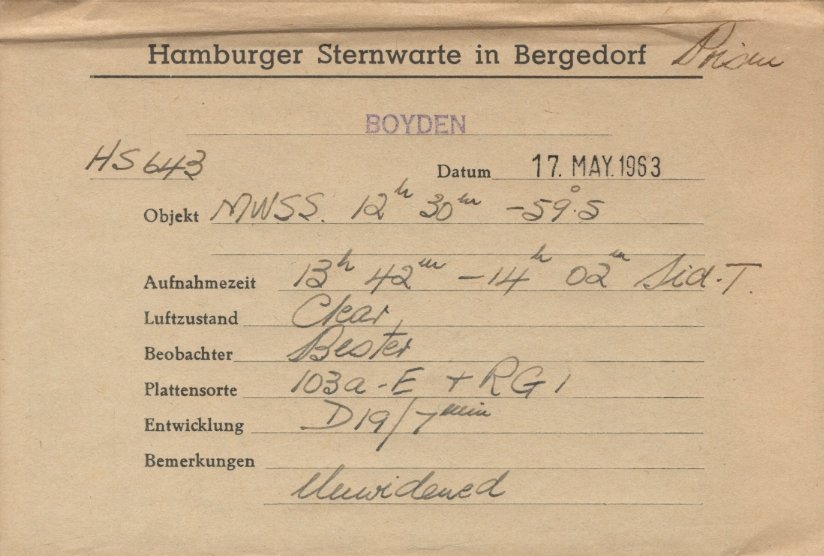 Hamburger Sternwarte in Bergedorf Prism
BOYDEN
HS 643
Datum 17. MAY. 1963
Objekt MWSS. 12ʰ 30ᵐ -59°.5
Aufnahmezeit 13ʰ 42ᵐ - 14ʰ 02ᵐ Sid. T.
Luftzustand Clear
Beobachter Bester
Plattensorte 103a-E + RG1
Entwicklung D19/7ᵐⁱⁿ
Bemerkungen
Unwidened